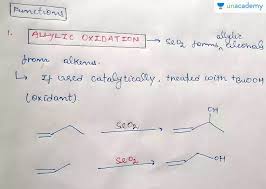 unacademy
Functions
1. ALLYLIC OXIDATION → SeO2 forms allylic alcohols
from alkenes.
↳ If used catalytically, treated with tBuOOH
(oxidant).
OH
SeO2
SeO2
OH